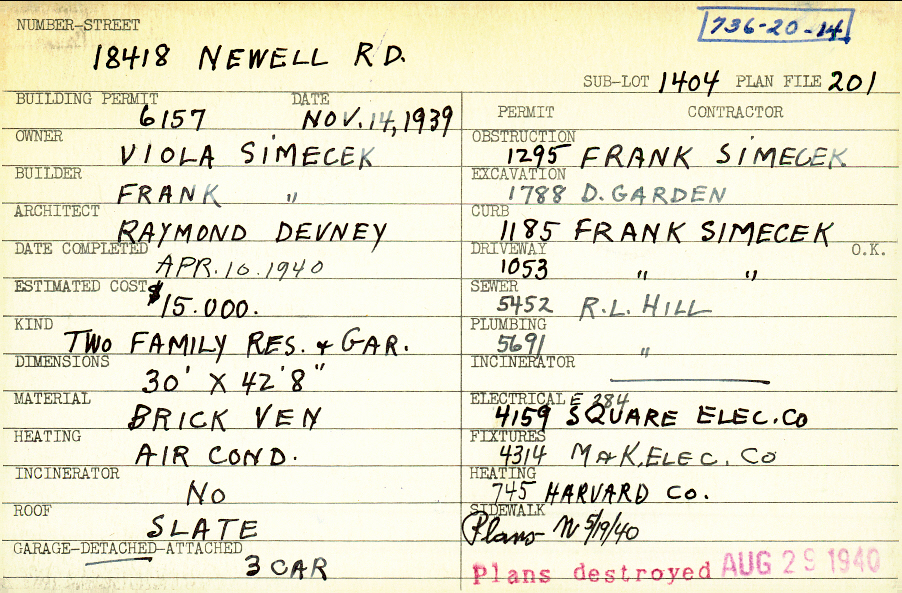 NUMBER-STREET
736-20-14
18418 NEWELL RD.
SUB-LOT 1404 PLAN FILE 201
BUILDING PERMIT DATE
6157 NOV. 14, 1939
OWNER
VIOLA SIMECEK
BUILDER
FRANK "
ARCHITECT
RAYMOND DEVNEY
DATE COMPLETED
APR. 10. 1940
ESTIMATED COST
$15.000.
KIND
TWO FAMILY RES. + GAR.
DIMENSIONS
30' X 42'8"
MATERIAL
BRICK VEN
HEATING
AIR COND.
INCINERATOR
NO
ROOF
SLATE
GARAGE-DETACHED-ATTACHED
3 CAR
PERMIT CONTRACTOR
OBSTRUCTION
1295 FRANK SIMECEK
EXCAVATION
1788 D. GARDEN
CURB
1185 FRANK SIMECEK
DRIVEWAY O.K.
1053 " "
SEWER
5452 R.L. HILL
PLUMBING
5691 "
INCINERATOR
ELECTRICAL E 284
4159 SQUARE ELEC. CO
FIXTURES
4314 M & K. ELEC. CO
HEATING
745 HARVARD CO.
SIDEWALK
Plans 5/19/40
Plans destroyed AUG 29 1940